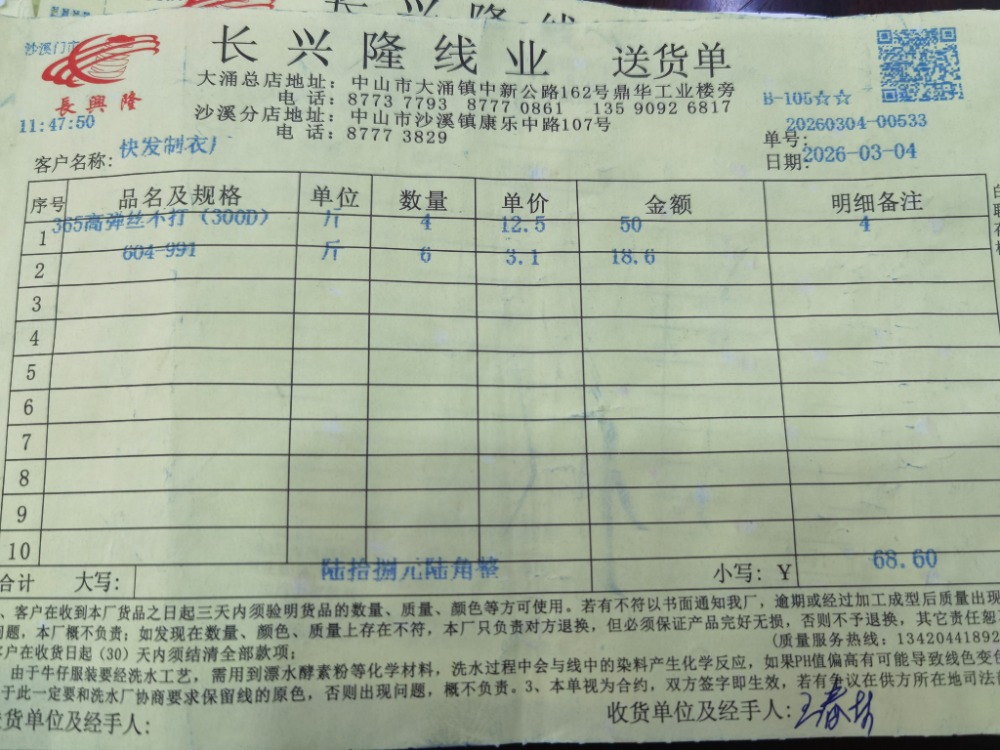 长兴隆线业 送货单
沙溪门市
長興隆
大涌总店地址：中山市大涌镇中新公路162号鼎华工业楼旁
电话：8773 7793 8770 0861 135 9092 6817
沙溪分店地址：中山市沙溪镇康乐中路107号
电话：8777 3829
B-105☆☆
11:47:50
单号：20260304-00533
客户名称：快发制衣厂
日期：2026-03-04
序号 品名及规格 单位 数量 单价 金额 明细备注
1 365高弹丝不打（300D） 斤 4 12.5 50 4
2 604-991 斤 6 3.1 18.6
3
4
5
6
7
8
9
10
合计 大写：陆拾捌元陆角整 小写：¥ 68.60
、客户在收到本厂货品之日起三天内须验明货品的数量、质量、颜色等方可使用。若有不符以书面通知我厂，逾期或经过加工成型后质量出现
问题，本厂概不负责；如发现在数量、颜色、质量上存在不符，本厂只负责对方退换，但必须保证产品完好无损，否则不予退换，其它责任恕
(质量服务热线：1342044189
客户在收货日起（30）天内须结清全部款项；
由于牛仔服装要经洗水工艺，需用到漂水酵素粉等化学材料，洗水过程中会与线中的染料产生化学反应，如果PH值偏高有可能导致线色变
于此一定要和洗水厂协商要求保留线的原色，否则出现问题，概不负责。3、本单视为合约，双方签字即生效，若有争议在供方所在地司法
货单位及经手人：
收货单位及经手人：王春